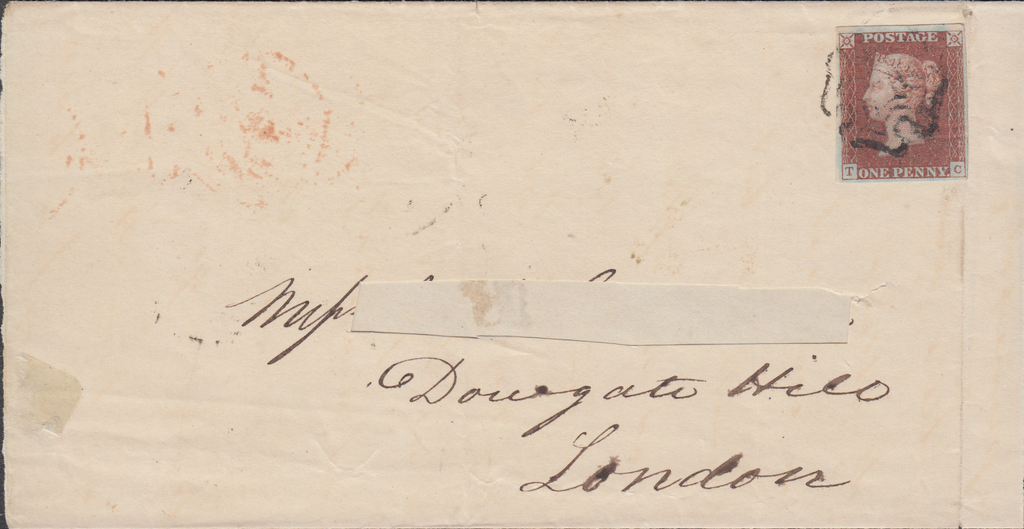 POSTAGE
T ONE PENNY C
Messrs
Dowgate Hill
London